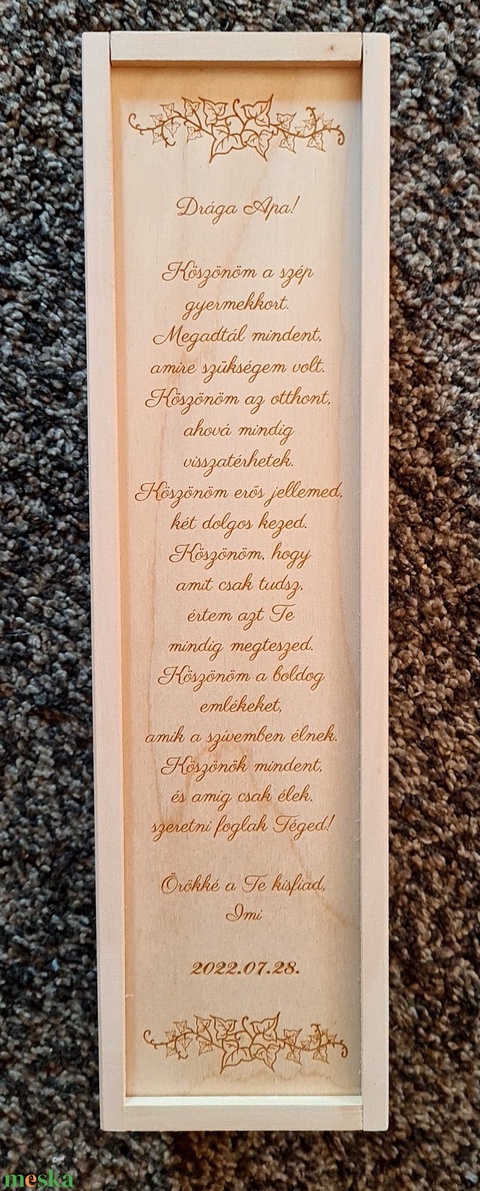 Drága Apa!
Köszönöm a szép
gyermekkort.
Megadtál mindent,
amire szükségem volt.
Köszönöm az otthont,
ahová mindig
visszatérhetek.
Köszönöm erős jellemed,
két dolgos kezed.
Köszönöm, hogy
amit csak tudsz,
értem azt Te
mindig megteszed.
Köszönöm a boldog
emlékeket,
amik a szívemben élnek.
Köszönök mindent,
és amíg csak élek,
szeretni foglak Téged!
Örökké a Te kisfiad,
Imi
2022.07.28.
meska